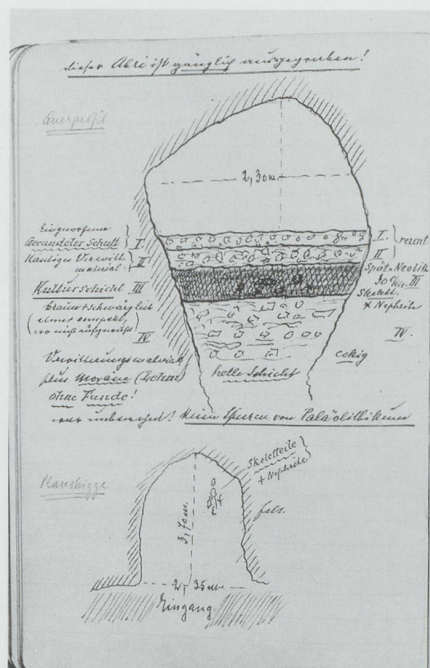 dieser Abri ist gänzlich ausgegraben!
Querprofil
2,30 m
Eingeworfener
Gerundeter Schutt I.
Kantiges Verwitt. II
material.
Kultur Schicht III
braun + schwärzlich
IV
Verwitterungsmaterial
plus Moräne
ohne Funde!
I. recent
II
Spät-Neolith.
30 cm III
Skelett
+ Nephrite
IV.
eckig
helle Schicht
unbewohnt! Keine Spuren von Paläolithikum
Planskizze
Skelettteile
+ Nephrite
fels.
3,70 m.
2,35 m
Eingang